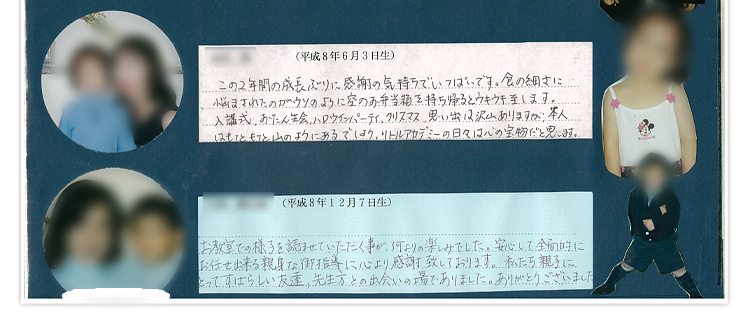 (平成8年6月3日生)
この2年間の成長ぶりに感謝の気持ちでいっぱいです。食の細さに
悩まされたのがウソのように空のお弁当箱を持ち帰るとウキウキ致します。
入講式、おたん生会、ハロウィンパーティ、クリスマス、思い出は沢山ありますが、本人
はもっともっと山のようにあるでしょう。リトルアカデミーの日々は心の宝物だと思います。
(平成8年12月7日生)
お教室での様子を読ませていただく事が、何よりの楽しみでした。安心して全面的に
お任せ出来る親身な御指導に心より感謝致しております。私たち親子に
とってすばらしい友達、先生方との出会いの場でありました。ありがとうございました